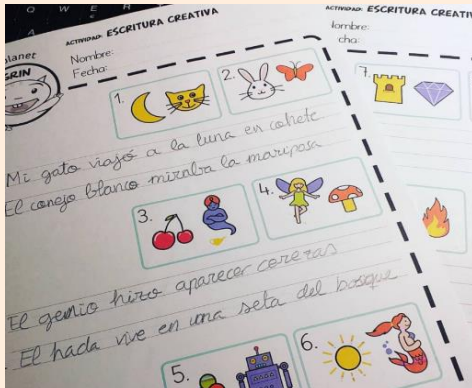 Q W E R
ACTIVIDAD: ESCRITURA CREATIVA
Nombre:
Fecha:
planet
GRIN
1.
2.
Mi gato viajó a la luna en cohete
El conejo blanco miraba la mariposa
3.
4.
El genio hizo aparecer cerezas
El hada vive en una seta del bosque
5.
6.
ACTIVIDAD: ESCRITURA CREATIV
Nombre:
cha:
7.